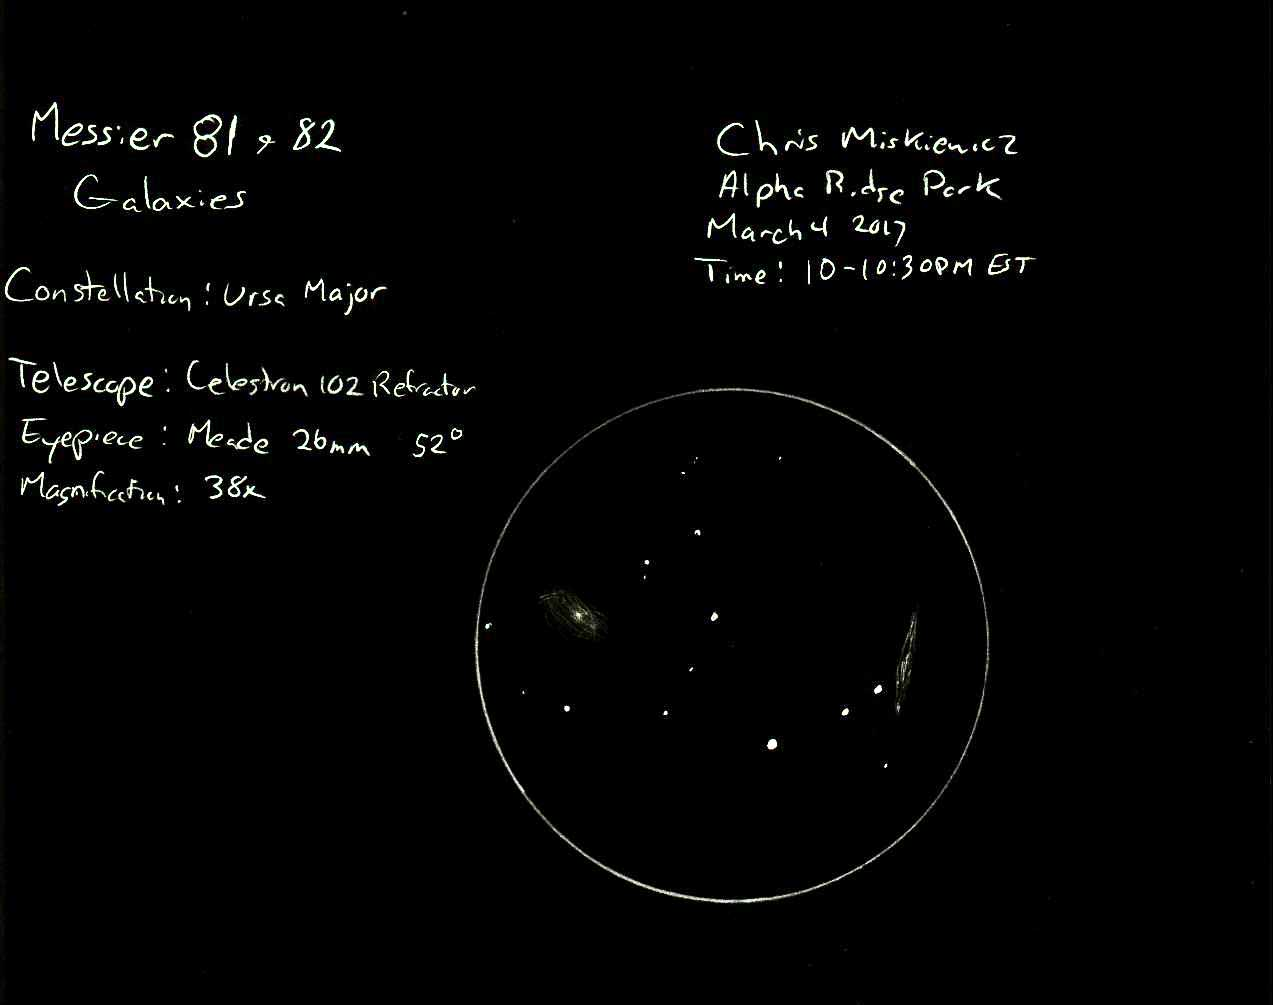 Messier 81 & 82
Galaxies
Constellation: Ursa Major
Telescope: Celestron 102 Refractor
Eyepiece: Meade 26mm 52°
Magnification: 38x
Chris Miskiewicz
Alpha Ridge Park
March 4 2017
Time: 10-10:30PM EST